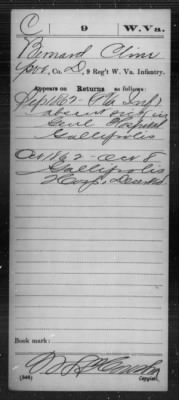 C 9 W.Va.
Bernard Cline
Pvt., Co. D, 9 Reg't W. Va. Infantry.
Appears on Returns as follows:
Sept 1862
absent sick in
Genl Hospital
Gallipolis
Oct 1862 - Oct 8
Gallipolis
Hosp. Deserted
Book mark:
(546) Copyist.